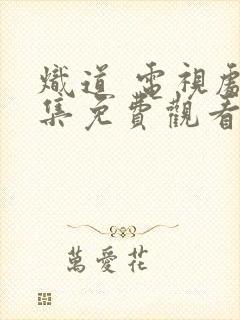 熾道 電視處
集免費觀看
萬愛花